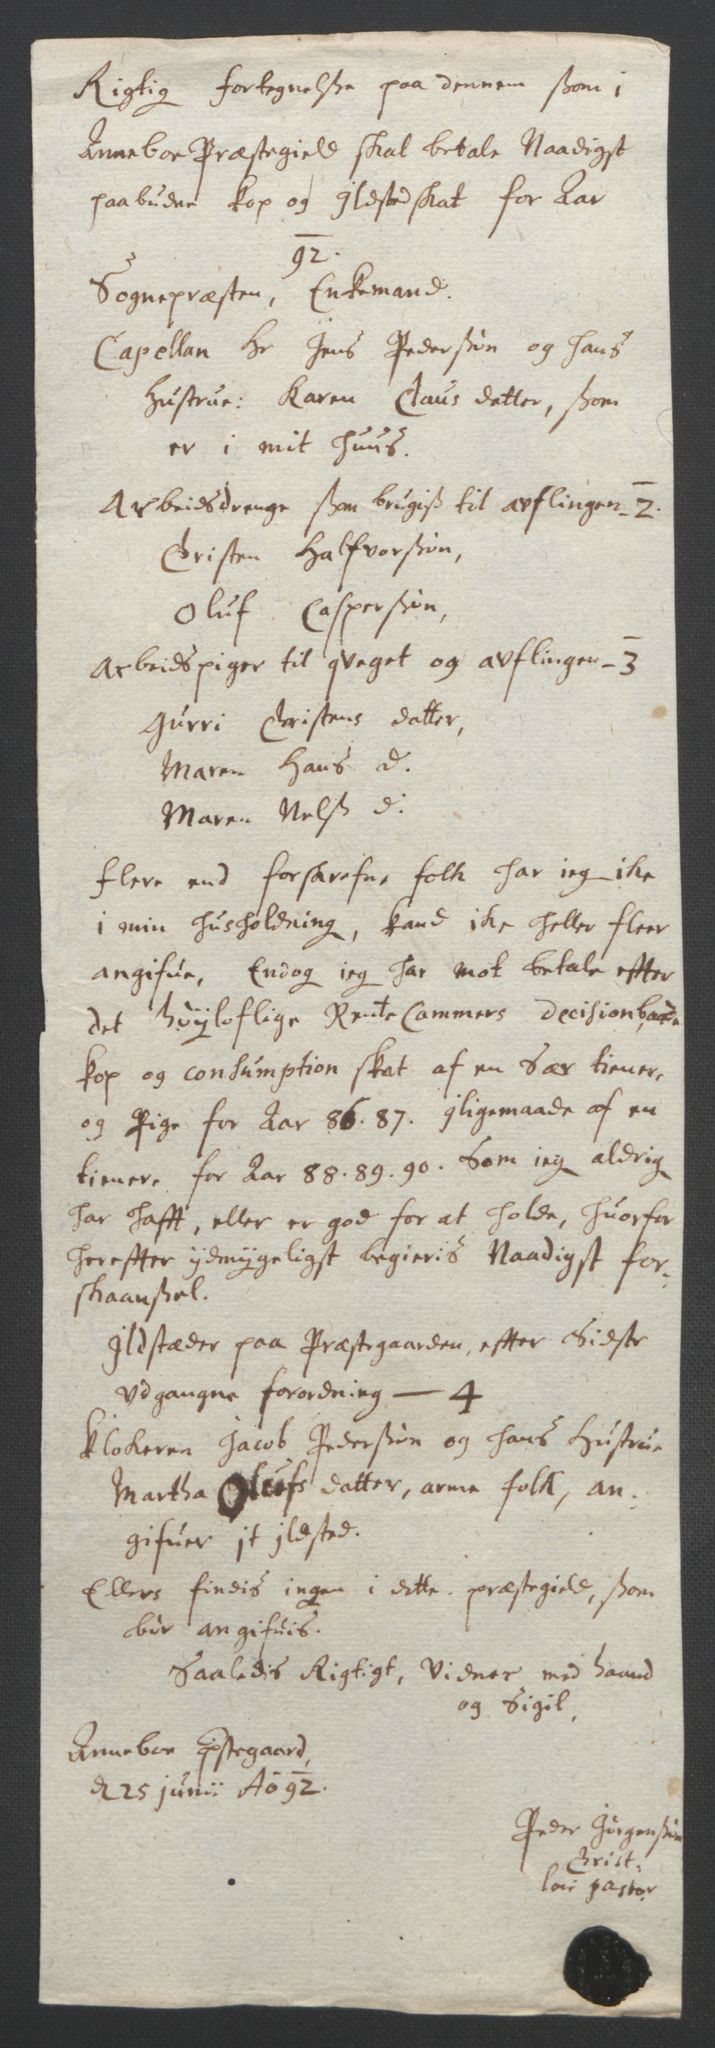 Rigtig fortegnelsse paa dennem ssom i
Anneboe Præstegield skal betale Naadigst
paabudne kop og Jldstedskat for Aar
92.
Sognepræsten, Enkemand.
Capellan Hr Jens Pederssøn og hans
Hustrue: Karen Claus datter, ssom
er i mit huus.
Arbeidsdrenge ssom brugiss til avflingen - 2.
Christen Halfvorssøn,
Oluf Casperssøn,
Arbeidspiger til qveget og avflingen - 3
Gurri Christens datter,
Maren Hans d.
Maren Nelss d.
flere end forskrefne folk har ieg ike
i min husholdning, kand ike heller fleer
angifue, Endog ieg har mot betale effter
det høyloflige RenteCammers decision baade
kop og consumption skat af en Sær tiener
og Pige for Aar 86. 87. jligemaade af en
tienere for Aar 88. 89. 90. Som ieg aldrig
har hafft, eller er god for at holde, huorfor
hereffter ydmygeligst begieris Naadigst for-
skaanssel.
Jldstæder paa Præstegaarden, effter Sidste
udgangne forordning — 4
Klokeren Jacob Pederssøn og hans Hustrue
Martha Olufs datter, arme folk, an-
gifuer jt jldsted.
Ellers findis ingen i dette præstegield, ssom
bør angifuis.
Saaledis Rigtigt, Vidner med haand
og Sigil,
Anneboe pstegaard,
d 25 junii Ao 92.
Peder Jørgenssøn
Christ:
loci pastor